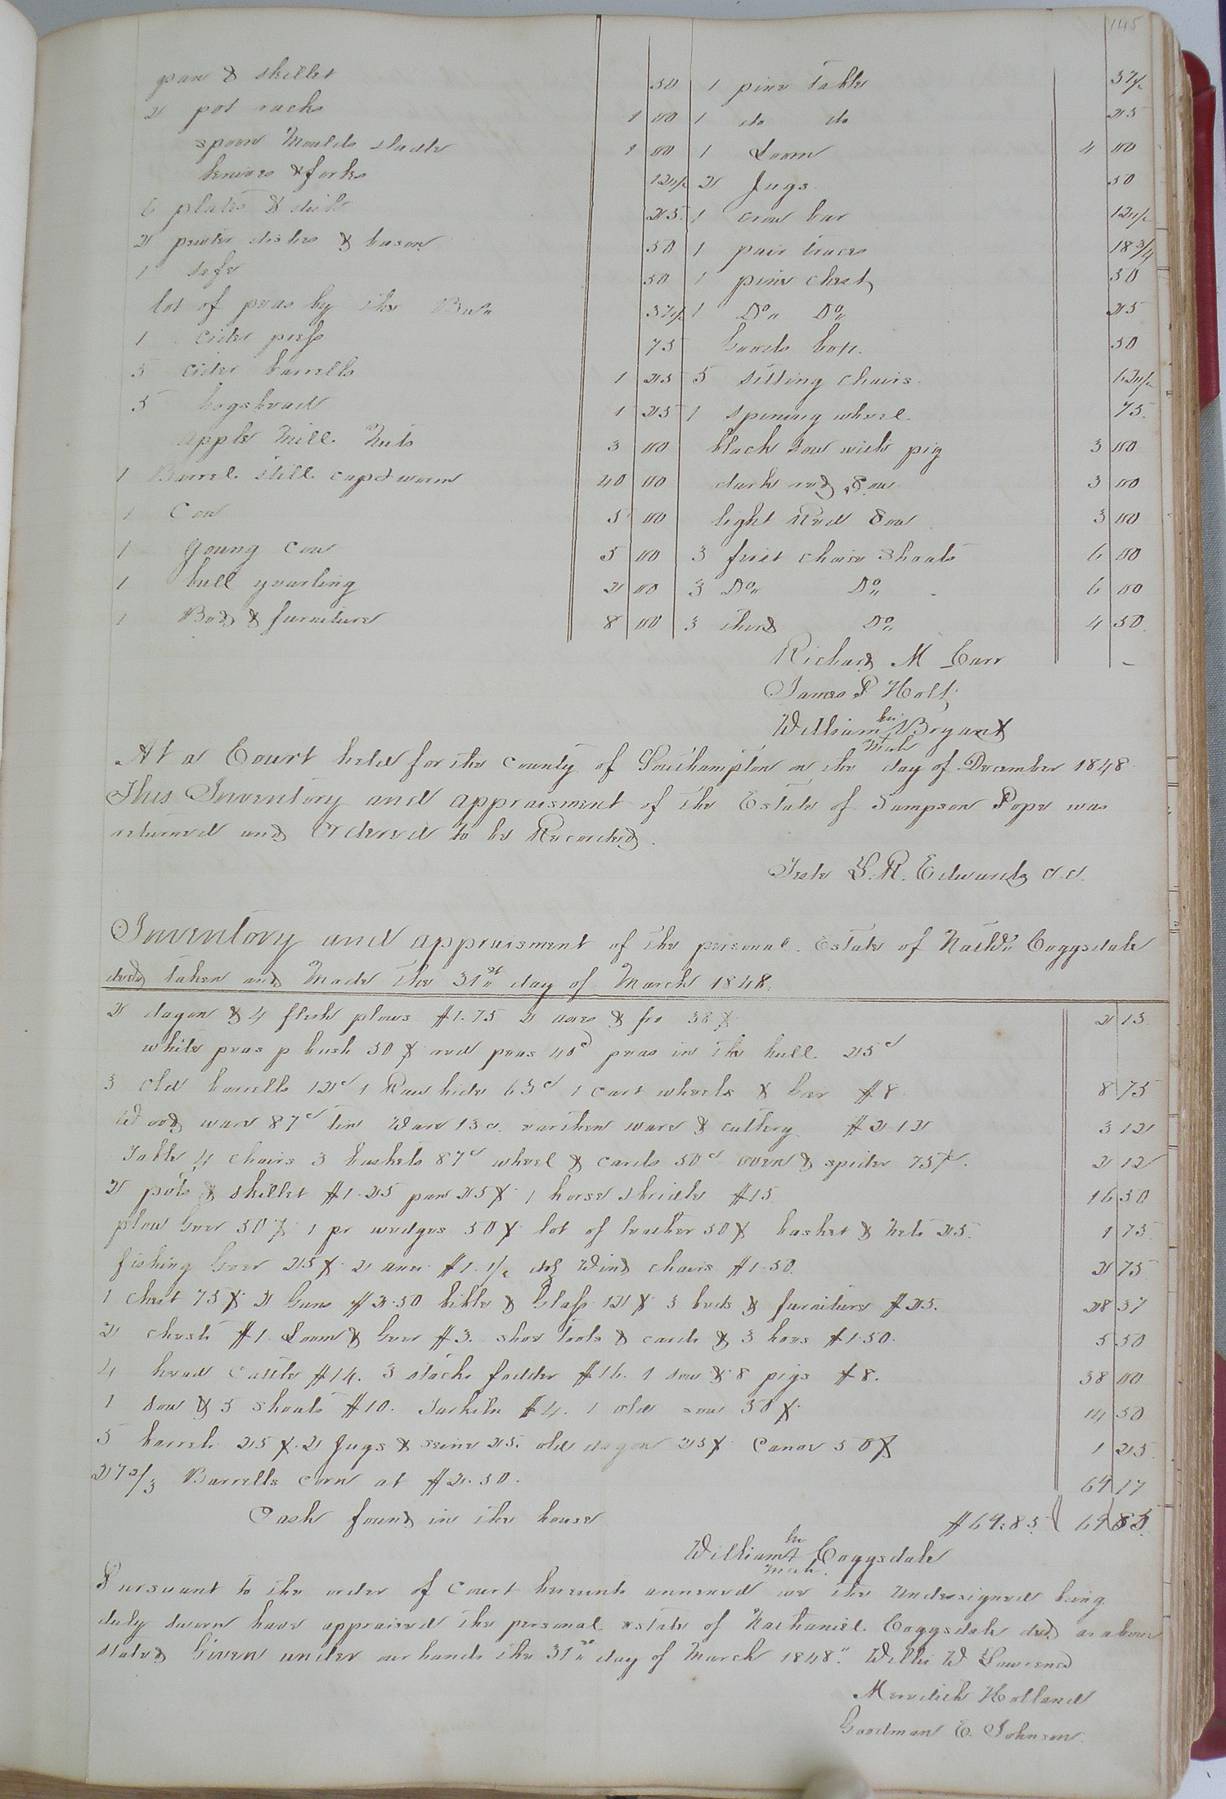 145
pan & skillet 50
2 pot racks 1 00
spoon Moulds ladle 1 00
knives & forks 12 1/2
6 plates & dish 25
2 pewter dishes & bason 50
1 safe 50
lot of peas by the Bus 37 1/2
1 cider press 75
5 cider barrells 1 25
5 hogshead 1 25
apple Mill Nuts 3 00
1 Barrel still cap & worm 40 00
1 Cow 5 00
1 young cow 5 00
1 bull yearling 2 00
1 Bed & furniture 8 00
1 pine table 37 1/2
1 do do 25
1 Loom 4 00
2 Jugs 50
1 crow bar 12 1/2
1 pair traces 18 3/4
1 pine chest 50
1 Do Do 25
50
5 sitting chairs 62 1/2
1 spining wheel 75
black sow with pig 3 00
dark red Sow 3 00
light Red Sow 3 00
3 first choice Shoats 6 00
3 Do Do 6 00
3 third Do 4 50
Richard M Carr
James P Holt
William his Bryant X
mark
At a Court held for the county of Southampton on the day of December 1848
This Inventory and appraisment of the Estate of Sampson Pope was
returned and Ordered to be Recorded.
Teste L. R. Edwards c.c.
Inventory and appraisment of the personal Estate of Nathl Coggsdale
decd taken and Made the 31st day of March 1848.
2 dagon & 4 flush plows $1.75 2 axes & fro 38 2 13
white peas p bush 50 red peas 40 peas in the hull 25
3 old barrells 12 1 Raw hide 63 1 cart wheels & bar $8 8 75
Wood ware 87 tin Ware 13 earthen ware & cutlery $2 12 3 12
Table 4 chairs 3 baskets 87 wheel & cards 50 oven & spider 75 2 12
2 pots & skillet $1.25 pan 25 1 horse & bridle $15 16 50
plow Gear 50 1 pr wedges 50 lot of leather 50 basket & Nets 25 1 75
fishing Gear 25 2 $1 1/2 doz Wind chairs $1.50 2 75
1 chest 75 2 Guns $2.50 bible & Glass 12 3 beds & furniture $25. 28 37
2 chests $1 Loom & Gear $3. shoe tools & cards & 3 hoes $1.50 5 50
4 head Cattle $14. 3 stacks fodder $16. 1 sow & 8 pigs $8. 38 00
1 sow & 5 shoats $10. $4. 1 old sow 50 14 50
5 barrels 25 2 Jugs & seine 25 old dagon 25 Canoe 50 1 25
27 2/3 Barrells corn at $2.50. 69 17
Cash found in the house $69.85 69 85
William his + Coggsdale
mark
Pursuant to the order of Court hereunto annexed we the Undersigned being
duly sworn have appraised the personal estate of Nathaniel Coggsdale decd as above
stated Given under our hands the 31st day of March 1848. Willie W Lawrence
Meredith Holland
Goodman E. Johnson